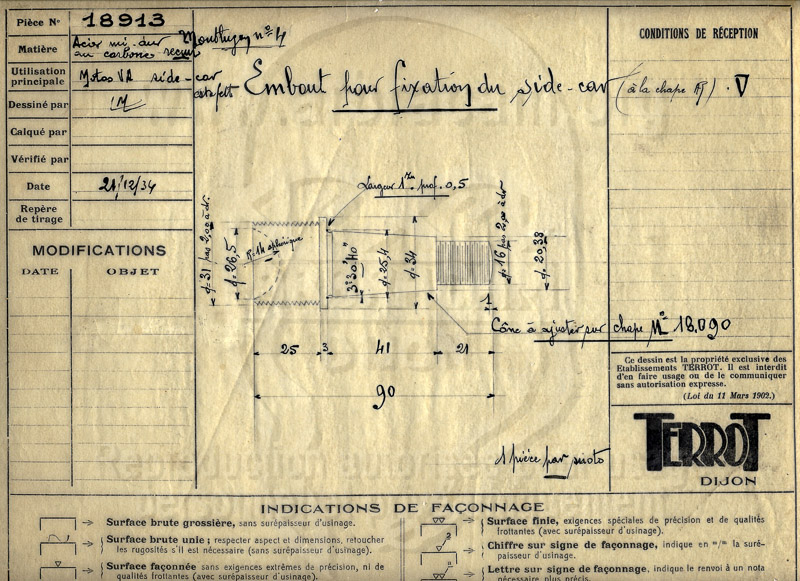 Pièce N° 18913
Matière Acier mi-dur Montluçon n° 4
au carbone recuit
Utilisation principale Motos VA side-car
Dessiné par
Calqué par
Vérifié par
Date 21/12/34
Repère de tirage
MODIFICATIONS
DATE OBJET
Embout pour fixation du side-car (à la chape) ∇
CONDITIONS DE RÉCEPTION
Largeur 1 m/m prof. 0,5
d=31 pas 2,00 à dr.
d=26,5
R=14 sphérique
3°30'40"
d=25,4
d=34
d=16 pas 2,00 à dr.
d=20,38
1
Cône à ajuster sur chape N° 18.090
25 3 41 21
90
1 pièce par moto
Ce dessin est la propriété exclusive des
Etablissements TERROT. Il est interdit
d'en faire usage ou de le communiquer
sans autorisation expresse.
(Loi du 11 Mars 1902.)
TERROT
DIJON
INDICATIONS DE FAÇONNAGE
Surface brute grossière, sans surépaisseur d'usinage.
Surface brute unie ; respecter aspect et dimensions, retoucher
les rugosités s'il est nécessaire (sans surépaisseur d'usinage).
Surface façonnée sans exigences extrêmes de précision, ni de
qualités frottantes (avec surépaisseur d'usinage).
Surface finie, exigences spéciales de précision et de qualités
frottantes (avec surépaisseur d'usinage).
Chiffre sur signe de façonnage, indique en "/" la suré-
paisseur d'usinage.
Lettre sur signe de façonnage, indique le renvoi à un nota
nécessaire plus précis.